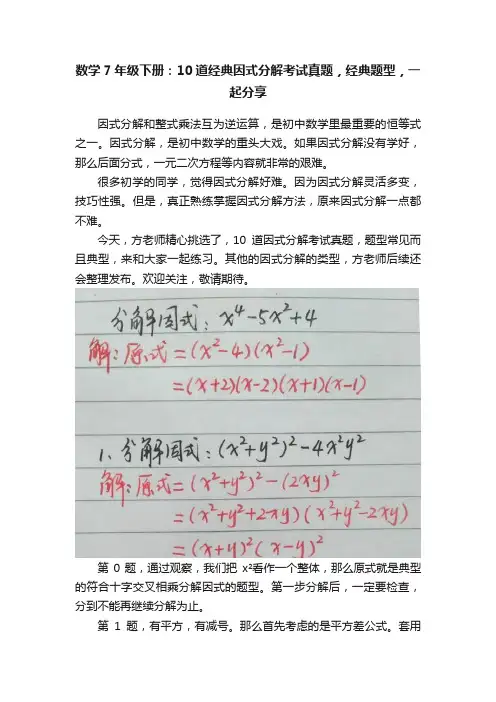 数学7年级下册：10道经典因式分解考试真题，经典题型，一
起分享
因式分解和整式乘法互为逆运算，是初中数学里最重要的恒等式
之一。因式分解，是初中数学的重头大戏。如果因式分解没有学好，
那么后面分式，一元二次方程等内容就非常的艰难。
很多初学的同学，觉得因式分解好难。因为因式分解灵活多变，
技巧性强。但是，真正熟练掌握因式分解方法，原来因式分解一点都
不难。
今天，方老师精心挑选了，10道因式分解考试真题，题型常见而
且典型，来和大家一起练习。其他的因式分解的类型，方老师后续还
会整理发布。欢迎关注，敬请期待。
分解因式：x⁴-5x²+4
解：原式=(x²-4)(x²-1)
=(x+2)(x-2)(x+1)(x-1)
1、分解因式：(x²+y²)²-4x²y²
解：原式=(x²+y²)²-(2xy)²
=(x²+y²+2xy)(x²+y²-2xy)
=(x+y)²(x-y)²
第0题，通过观察，我们把x²看作一个整体，那么原式就是典型
的符合十字交叉相乘分解因式的题型。第一步分解后，一定要检查，
分到不能再继续分解为止。
第1题，有平方，有减号。那么首先考虑的是平方差公式。套用